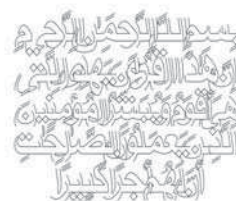 بسم الله الرحمن الرحيم
إن هذا القرآن يهدي للتي
هي أقوم ويبشر المؤمنين
الذين يعملون الصالحات
أن لهم أجرا كبيرا